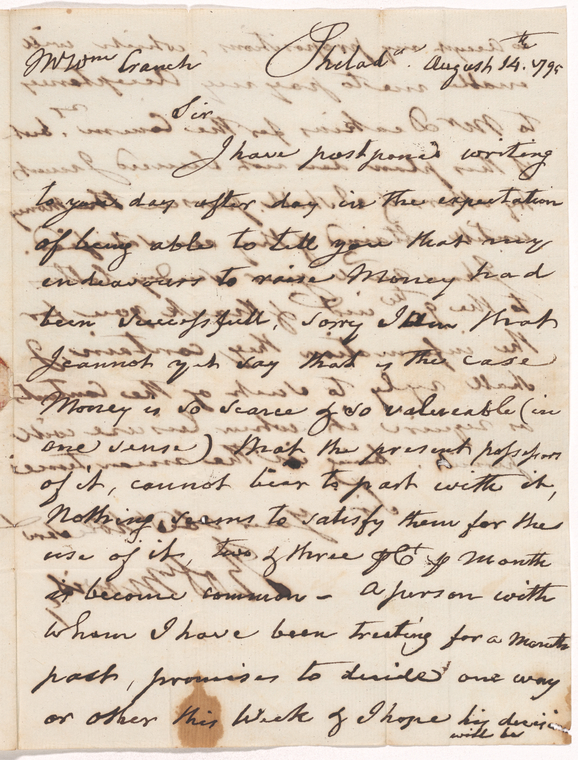 Mr Wm Cranch Philada. August 14th. 1795
Sir
I have postponed writing
to you day after day in the expectation
of being able to tell you that my
endeavours to raise Money had
been successfull, sorry I am that
I cannot yet say that is the case
Money is so scarce & so valueable (in
one sense) that the present possessors
of it, cannot bear to part with it,
Nothing seems to satisfy them for the
use of it, two & three ⅌ Ct ⅌ Month
is become common – A person with
whom I have been treating for a Month
past, promises to decide one way
or other this Week & I hope his decisi
will be